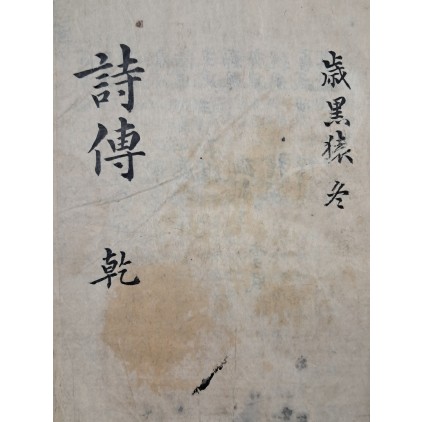 歲黑猿 冬
詩傳 乾